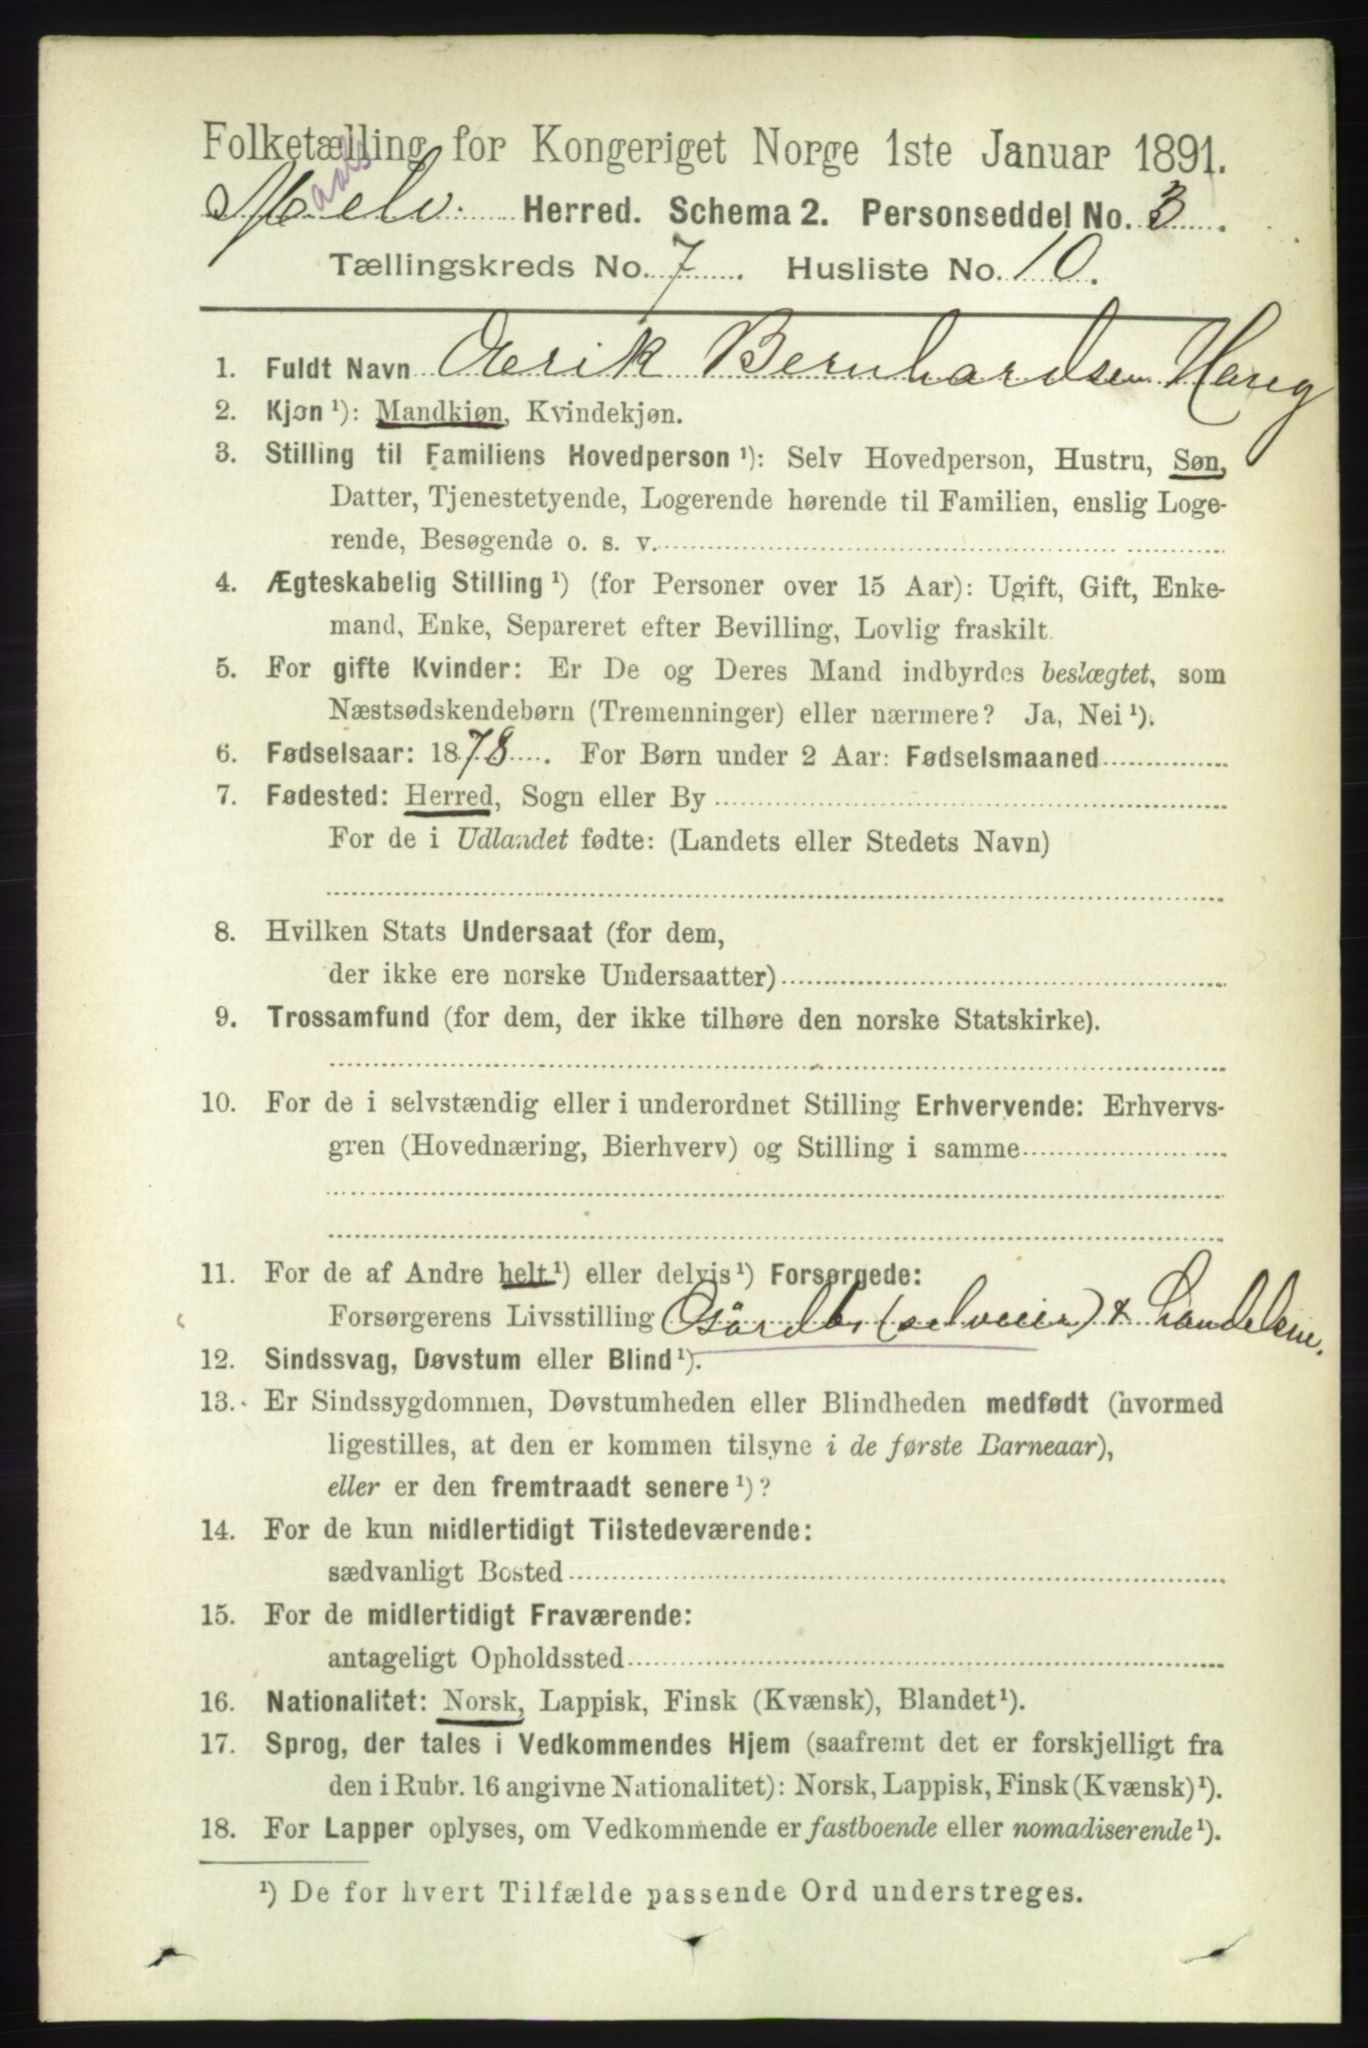 Folketælling for Kongeriget Norge 1ste Januar 1891.
Maalselv Herred. Schema 2. Personseddel No. 3.
Tællingskreds No. 7. Husliste No. 10.
1. Fuldt Navn Aerik Bernhardsen Haug
2. Kjøn ¹): Mandkjøn, Kvindekjøn.
3. Stilling til Familiens Hovedperson ¹): Selv Hovedperson, Hustru, Søn,
Datter, Tjenestetyende, Logerende hørende til Familien, enslig Loge-
rende, Besøgende o. s. v.
4. Ægteskabelig Stilling ¹) (for Personer over 15 Aar): Ugift, Gift, Enke-
mand, Enke, Separeret efter Bevilling, Lovlig fraskilt.
5. For gifte Kvinder: Er De og Deres Mand indbyrdes beslægtet, som
Næstsødskendebørn (Tremenninger) eller nærmere? Ja, Nei ¹).
6. Fødselsaar: 1878. For Børn under 2 Aar: Fødselsmaaned
7. Fødested: Herred, Sogn eller By
For de i Udlandet fødte: (Landets eller Stedets Navn)
8. Hvilken Stats Undersaat (for dem,
der ikke ere norske Undersaatter)
9. Trossamfund (for dem, der ikke tilhøre den norske Statskirke).
10. For de i selvstændig eller i underordnet Stilling Erhvervende: Erhvervs-
gren (Hovednæring, Bierhverv) og Stilling i samme
11. For de af Andre helt ¹) eller delvis ¹) Forsørgede:
Forsørgerens Livsstilling Gårdbr (selveier) &
12. Sindssvag, Døvstum eller Blind ¹).
13. Er Sindssygdommen, Døvstumheden eller Blindheden medfødt (hvormed
ligestilles, at den er kommen tilsyne i de første Barneaar),
eller er den fremtraadt senere ¹)?
14. For de kun midlertidigt Tilstedeværende:
sædvanligt Bosted
15. For de midlertidigt Fraværende:
antageligt Opholdssted
16. Nationalitet: Norsk, Lappisk, Finsk (Kvænsk), Blandet ¹).
17. Sprog, der tales i Vedkommendes Hjem (saafremt det er forskjelligt fra
den i Rubr. 16 angivne Nationalitet): Norsk, Lappisk, Finsk (Kvænsk) ¹).
18. For Lapper oplyses, om Vedkommende er fastboende eller nomadiserende ¹).
¹) De for hvert Tilfælde passende Ord understreges.